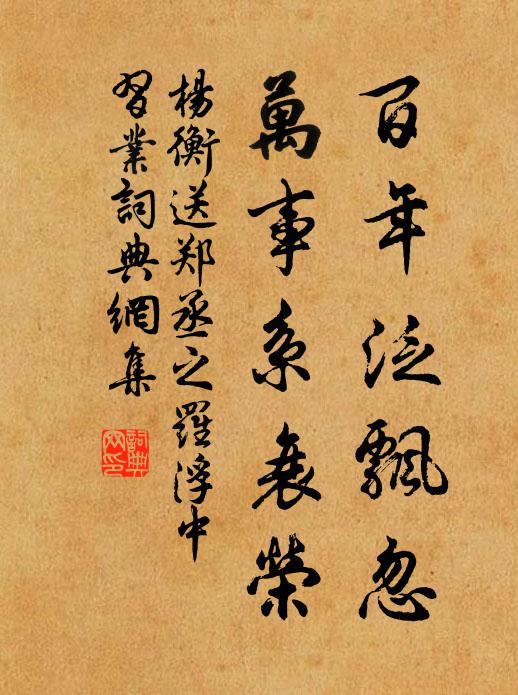 百年泛飘忽
萬事系衰榮
楊衡送郑丞之羅浮中
習業詞典網集
詞典网印